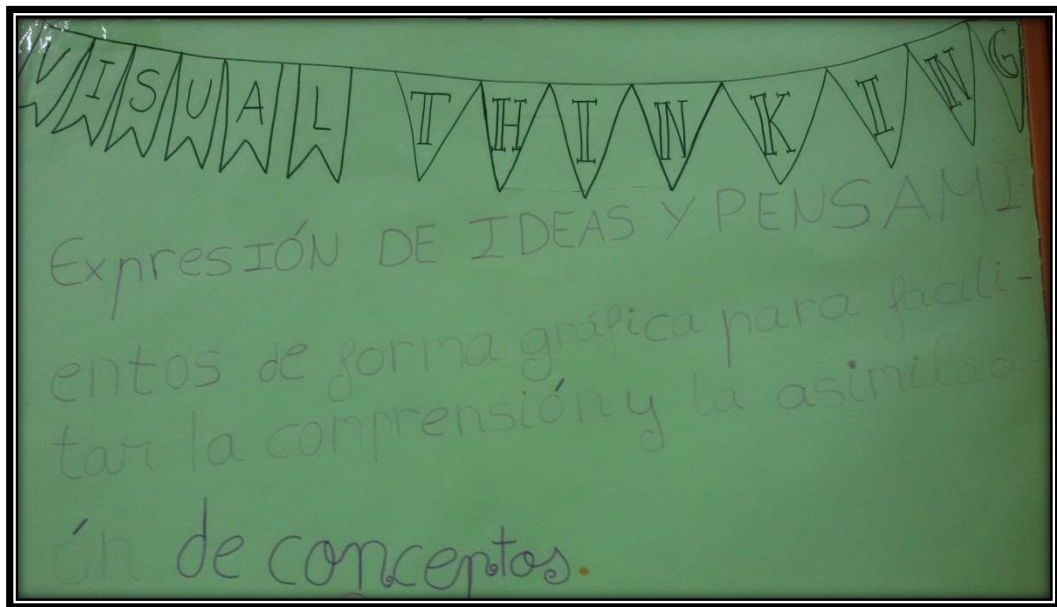 VISUAL THINKING
Expresión DE IDEAS Y PENSAMI-
entos de forma gráfica para facili-
tar la comprensión y la asimilaci-
ón de conceptos.